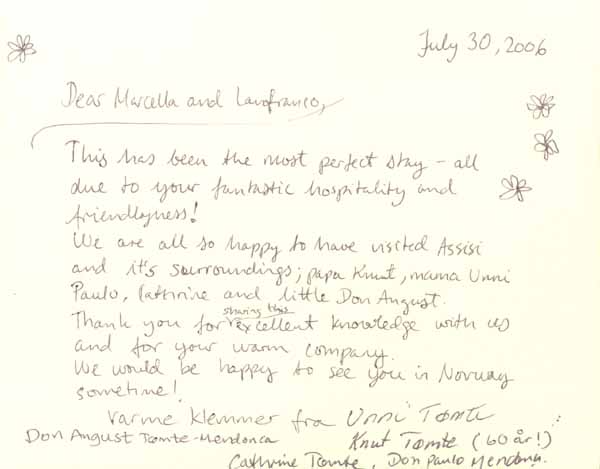 July 30, 2006
Dear Marcella and Lanfranco,
This has been the most perfect stay – all
due to your fantastic hospitality and
friendlyness!
We are all so happy to have visited Assisi
and it's surroundings; papa Knut, mama Unni
Paulo, Cathrine and little Don August.
sharing this
Thank you for excellent knowledge with us
and for your warm company.
We would be happy to see you in Norway
sometime!
Varme klemmer fra Unni Tømte
Don August Tømte-Mendonca Knut Tømte (60 år!)
Cathrine Tømte, Don Paulo Mendonca.